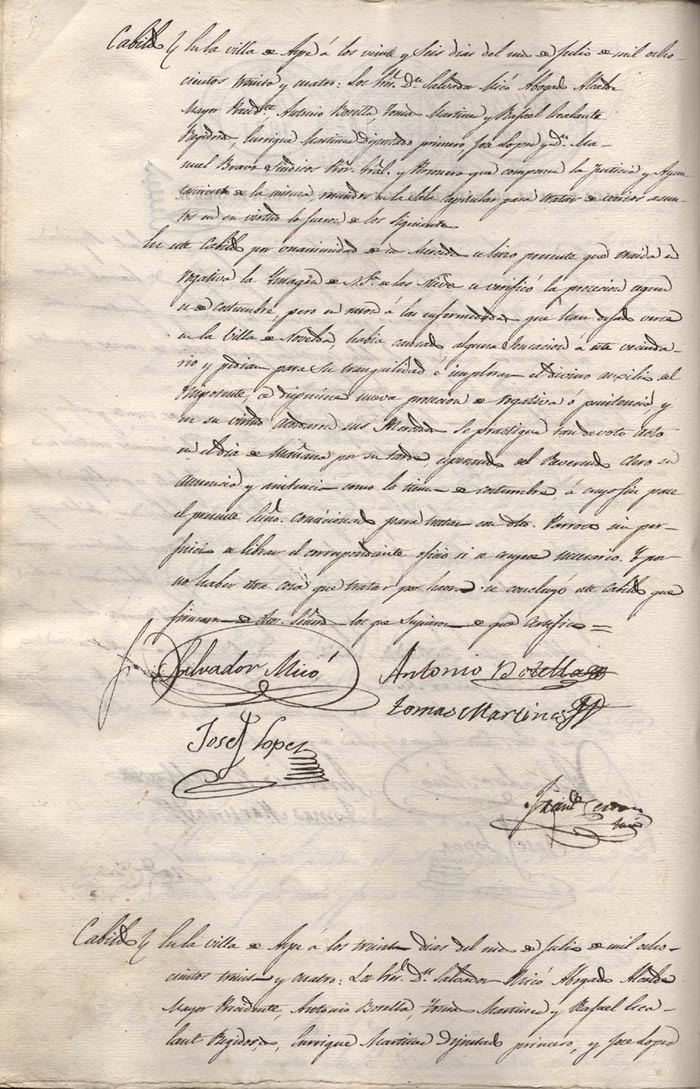 Cabildo En la villa de Aspe á los veinte y seis dias del mes de Julio de mil ocho-
cientos treinta y cuatro: Los Sres. Dn. Salvador Micó Abogado Alcalde
Mayor Presidte. Antonio Botella, Tomas Martinez y Rafael Escalante
Regidores, Enrrique Martinez Diputado primero, Jose Lopez y Dn. Ma-
nuel Bravo Sindicos Pror. Gral. y Personero que componen la Justicia y Ayun-
tamiento de la misma, reunidos en la Sala capitular para tratar de varios asun-
tos en su virtud lo fueron de los siguientes
En este Cabildo por unanimidad de sus Mercedes se hizo presente que traida en
rogativa la Ymagen de N. Sa. de las Nieves se verificó la procesion segun
es de costumbre, pero en razon á las enfermedades que han dejado verse
en la Villa de Novelda, habia causado alguna á este vecinda-
rio y pedian para su tranquilidad é implorar el divino auxilio del
Omnipotente, se dispusiese nueva procesion de rogativa ó penitencia y
en su virtud acordaron sus Mercedes se practique tan devoto acto
en el dia de mañana por su tarde, esperando del Reverendo Clero su
anuencia y asistencia como lo tiene de costumbre, á cuyo fin pase
el presente Esno. comisionado para tratar con dho. Parroco sin per-
juicio de librar el correspondiente oficio si se creyese necesario. Y por
no haber otra cosa que tratar por haora se concluyó este Cabildo que
firmaron de dhos. Sres. los que supieron de que certifico =
Salvador Micó Antonio Botella
Tomas Martinez
Josef Lopez
Cabildo En la villa de Aspe á los treinta dias del mes de Julio de mil ocho-
cientos treinta y cuatro: Los Sres. Dn. Salvador Micó Abogado Alcalde
Mayor Presidente, Antonio Botella, Tomas Martinez y Rafael Esca-
lant Regidores, Enrrique Martinez Diputado primero, y Jose Lopez